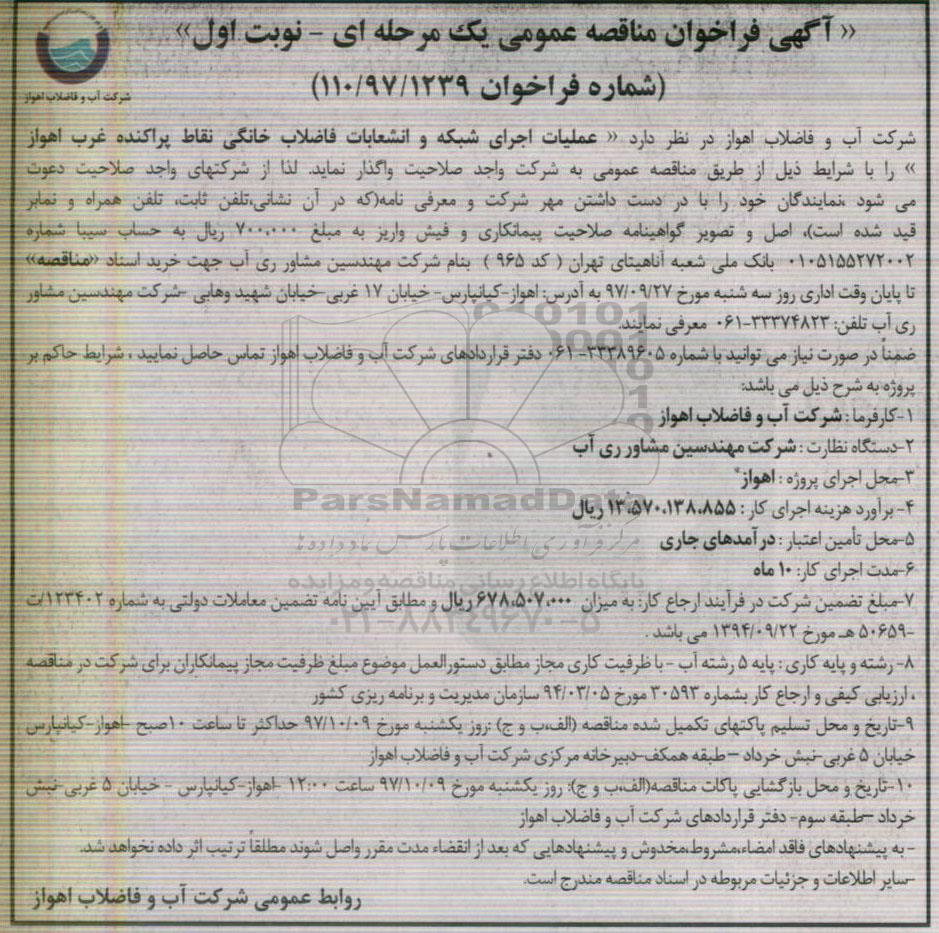 « آگهی فراخوان مناقصه عمومی یک مرحله ای - نوبت اول»
(شماره فراخوان ۱۱۰/۹۷/۱۲۳۹)
شرکت آب و فاضلاب اهواز
شرکت آب و فاضلاب اهواز در نظر دارد « عملیات اجرای شبکه و انشعابات فاضلاب خانگی نقاط پراکنده غرب اهواز
» را با شرایط ذیل از طریق مناقصه عمومی به شرکت واجد صلاحیت واگذار نماید. لذا از شرکتهای واجد صلاحیت دعوت
می شود ،نمایندگان خود را با در دست داشتن مهر شرکت و معرفی نامه(که در آن نشانی،تلفن ثابت، تلفن همراه و نمابر
قید شده است)، اصل و تصویر گواهینامه صلاحیت پیمانکاری و فیش واریز به مبلغ ۷۰۰،۰۰۰ ریال به حساب سیبا شماره
۰۱۰۵۱۵۵۲۷۲۰۰۲ بانک ملی شعبه آناهیتای تهران ( کد ۹۶۵ ) بنام شرکت مهندسین مشاور ری آب جهت خرید اسناد «مناقصه»
تا پایان وقت اداری روز سه شنبه مورخ ۹۷/۰۹/۲۷ به آدرس: اهواز-کیانپارس- خیابان ۱۷ غربی-خیابان شهید وهابی -شرکت مهندسین مشاور
ری آب تلفن: ۳۳۳۷۴۸۲۳-۰۶۱ معرفی نمایند.
ضمناً در صورت نیاز می توانید با شماره ۳۳۳۸۹۶۰۵-۰۶۱ دفتر قراردادهای شرکت آب و فاضلاب اهواز تماس حاصل نمایید ، شرایط حاکم بر
پروژه به شرح ذیل می باشد:
۱-کارفرما : شرکت آب و فاضلاب اهواز
۲-دستگاه نظارت : شرکت مهندسین مشاور ری آب
۳-محل اجرای پروژه : اهواز
۴- برآورد هزینه اجرای کار : ۱۳،۵۷۰،۱۳۸،۸۵۵ ریال
۵-محل تأمین اعتبار : درآمدهای جاری
۶-مدت اجرای کار: ۱۰ ماه
۷-مبلغ تضمین شرکت در فرآیند ارجاع کار: به میزان ۶۷۸،۵۰۷،۰۰۰ ریال و مطابق آیین نامه تضمین معاملات دولتی به شماره ۱۲۳۴۰۲/ت
-۵۰۶۵۹ هـ مورخ ۱۳۹۴/۰۹/۲۲ می باشد .
۸- رشته و پایه کاری : پایه ۵ رشته آب - با ظرفیت کاری مجاز مطابق دستورالعمل موضوع مبلغ ظرفیت مجاز پیمانکاران برای شرکت در مناقصه
، ارزیابی کیفی و ارجاع کار بشماره ۳۰۵۹۳ مورخ ۹۴/۰۳/۰۵ سازمان مدیریت و برنامه ریزی کشور
۹-تاریخ و محل تسلیم پاکتهای تکمیل شده مناقصه (الف،ب و ج) :روز یکشنبه مورخ ۹۷/۱۰/۰۹ حداکثر تا ساعت ۱۰صبح -اهواز-کیانپارس
خیابان ۵ غربی-نبش خرداد –طبقه همکف-دبیرخانه مرکزی شرکت آب و فاضلاب اهواز
۱۰-تاریخ و محل بازگشایی پاکات مناقصه(الف،ب و ج): روز یکشنبه مورخ ۹۷/۱۰/۰۹ ساعت ۱۲:۰۰ -اهواز-کیانپارس - خیابان ۵ غربی-نبش
خرداد –طبقه سوم- دفتر قراردادهای شرکت آب و فاضلاب اهواز
- به پیشنهادهای فاقد امضاء،مشروط،مخدوش و پیشنهادهایی که بعد از انقضاء مدت مقرر واصل شوند مطلقاً ترتیب اثر داده نخواهد شد.
-سایر اطلاعات و جزئیات مربوطه در اسناد مناقصه مندرج است.
روابط عمومی شرکت آب و فاضلاب اهواز
ParsNamadData
مرکز فرآوری اطلاعات پارس نماد داده ها
پایگاه اطلاع رسانی مناقصه و مزایده
۰۲۱-۸۸۳۴۹۶۷۰-۵